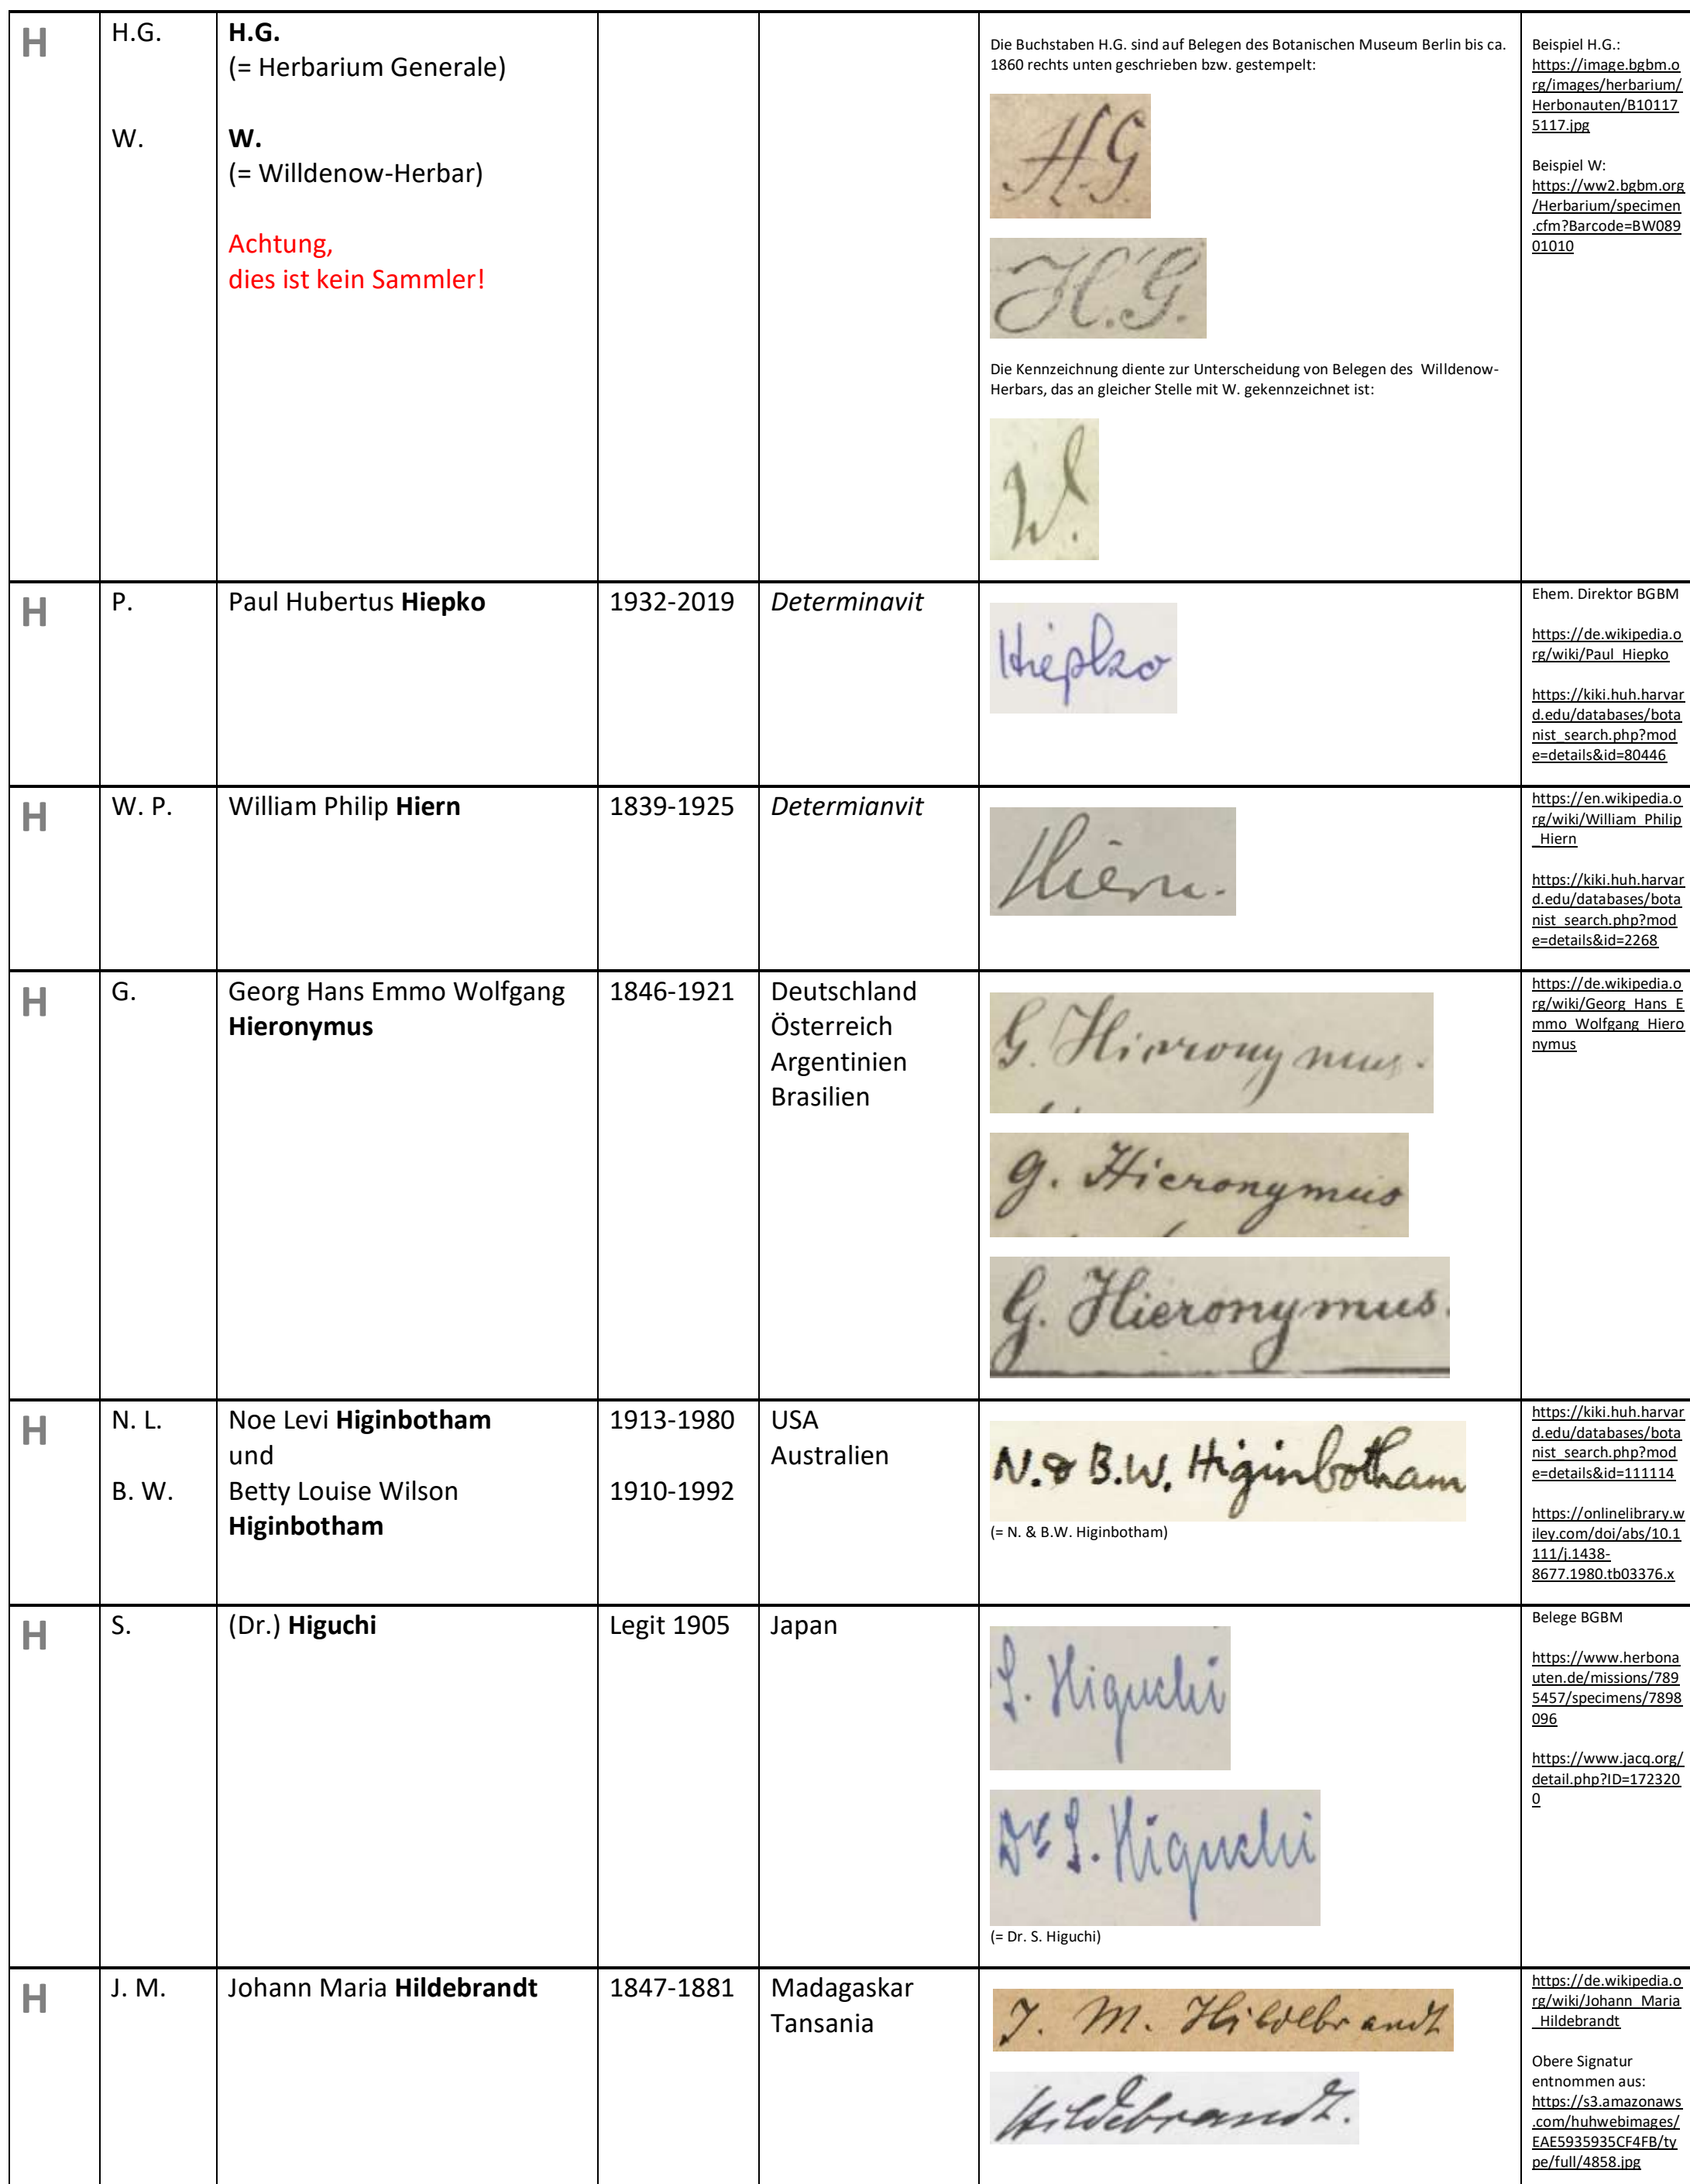 H
H.G.
H.G.
(= Herbarium Generale)
W.
W.
(= Willdenow-Herbar)
Achtung,
dies ist kein Sammler!
Die Buchstaben H.G. sind auf Belegen des Botanischen Museum Berlin bis ca.
1860 rechts unten geschrieben bzw. gestempelt:
H.G.
H.G.
Die Kennzeichnung diente zur Unterscheidung von Belegen des Willdenow-
Herbars, das an gleicher Stelle mit W. gekennzeichnet ist:
W.
Beispiel H.G.:
https://image.bgbm.o
rg/images/herbarium/
Herbonauten/B10117
5117.jpg
Beispiel W:
https://ww2.bgbm.org
/Herbarium/specimen
.cfm?Barcode=BW089
01010
H
P.
Paul Hubertus Hiepko
1932-2019
Determinavit
Hiepko
Ehem. Direktor BGBM
https://de.wikipedia.o
rg/wiki/Paul_Hiepko
https://kiki.huh.harvar
d.edu/databases/bota
nist_search.php?mod
e=details&id=80446
H
W. P.
William Philip Hiern
1839-1925
Determianvit
Hiern.
https://en.wikipedia.o
rg/wiki/William_Philip
_Hiern
https://kiki.huh.harvar
d.edu/databases/bota
nist_search.php?mod
e=details&id=2268
H
G.
Georg Hans Emmo Wolfgang
Hieronymus
1846-1921
Deutschland
Österreich
Argentinien
Brasilien
G. Hieronymus.
G. Hieronymus
G. Hieronymus.
https://de.wikipedia.o
rg/wiki/Georg_Hans_E
mmo_Wolfgang_Hiero
nymus
H
N. L.
Noe Levi Higinbotham
und
B. W.
Betty Louise Wilson
Higinbotham
1913-1980
1910-1992
USA
Australien
N. & B.W. Higinbotham
(= N. & B.W. Higinbotham)
https://kiki.huh.harvar
d.edu/databases/bota
nist_search.php?mod
e=details&id=111114
https://onlinelibrary.w
iley.com/doi/abs/10.1
111/j.1438-
8677.1980.tb03376.x
H
S.
(Dr.) Higuchi
Legit 1905
Japan
S. Higuchi
Dr. S. Higuchi
(= Dr. S. Higuchi)
Belege BGBM
https://www.herbona
uten.de/missions/789
5457/specimens/7898
096
https://www.jacq.org/
detail.php?ID=172320
0
H
J. M.
Johann Maria Hildebrandt
1847-1881
Madagaskar
Tansania
J. M. Hildebrandt
Hildebrandt.
https://de.wikipedia.o
rg/wiki/Johann_Maria
_Hildebrandt
Obere Signatur
entnommen aus:
https://s3.amazonaws
.com/huhwebimages/
EAE5935935CF4FB/ty
pe/full/4858.jpg